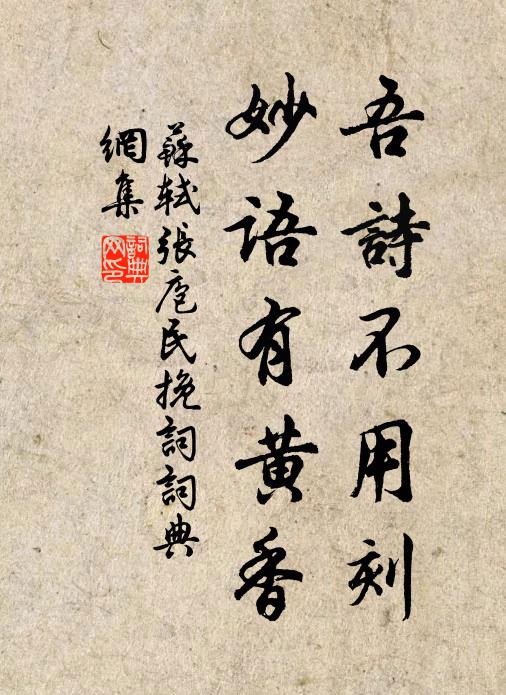 吾詩不用刻
妙語有黃香
蘇軾張庖民挽詞詞典
網集
詞典
网印